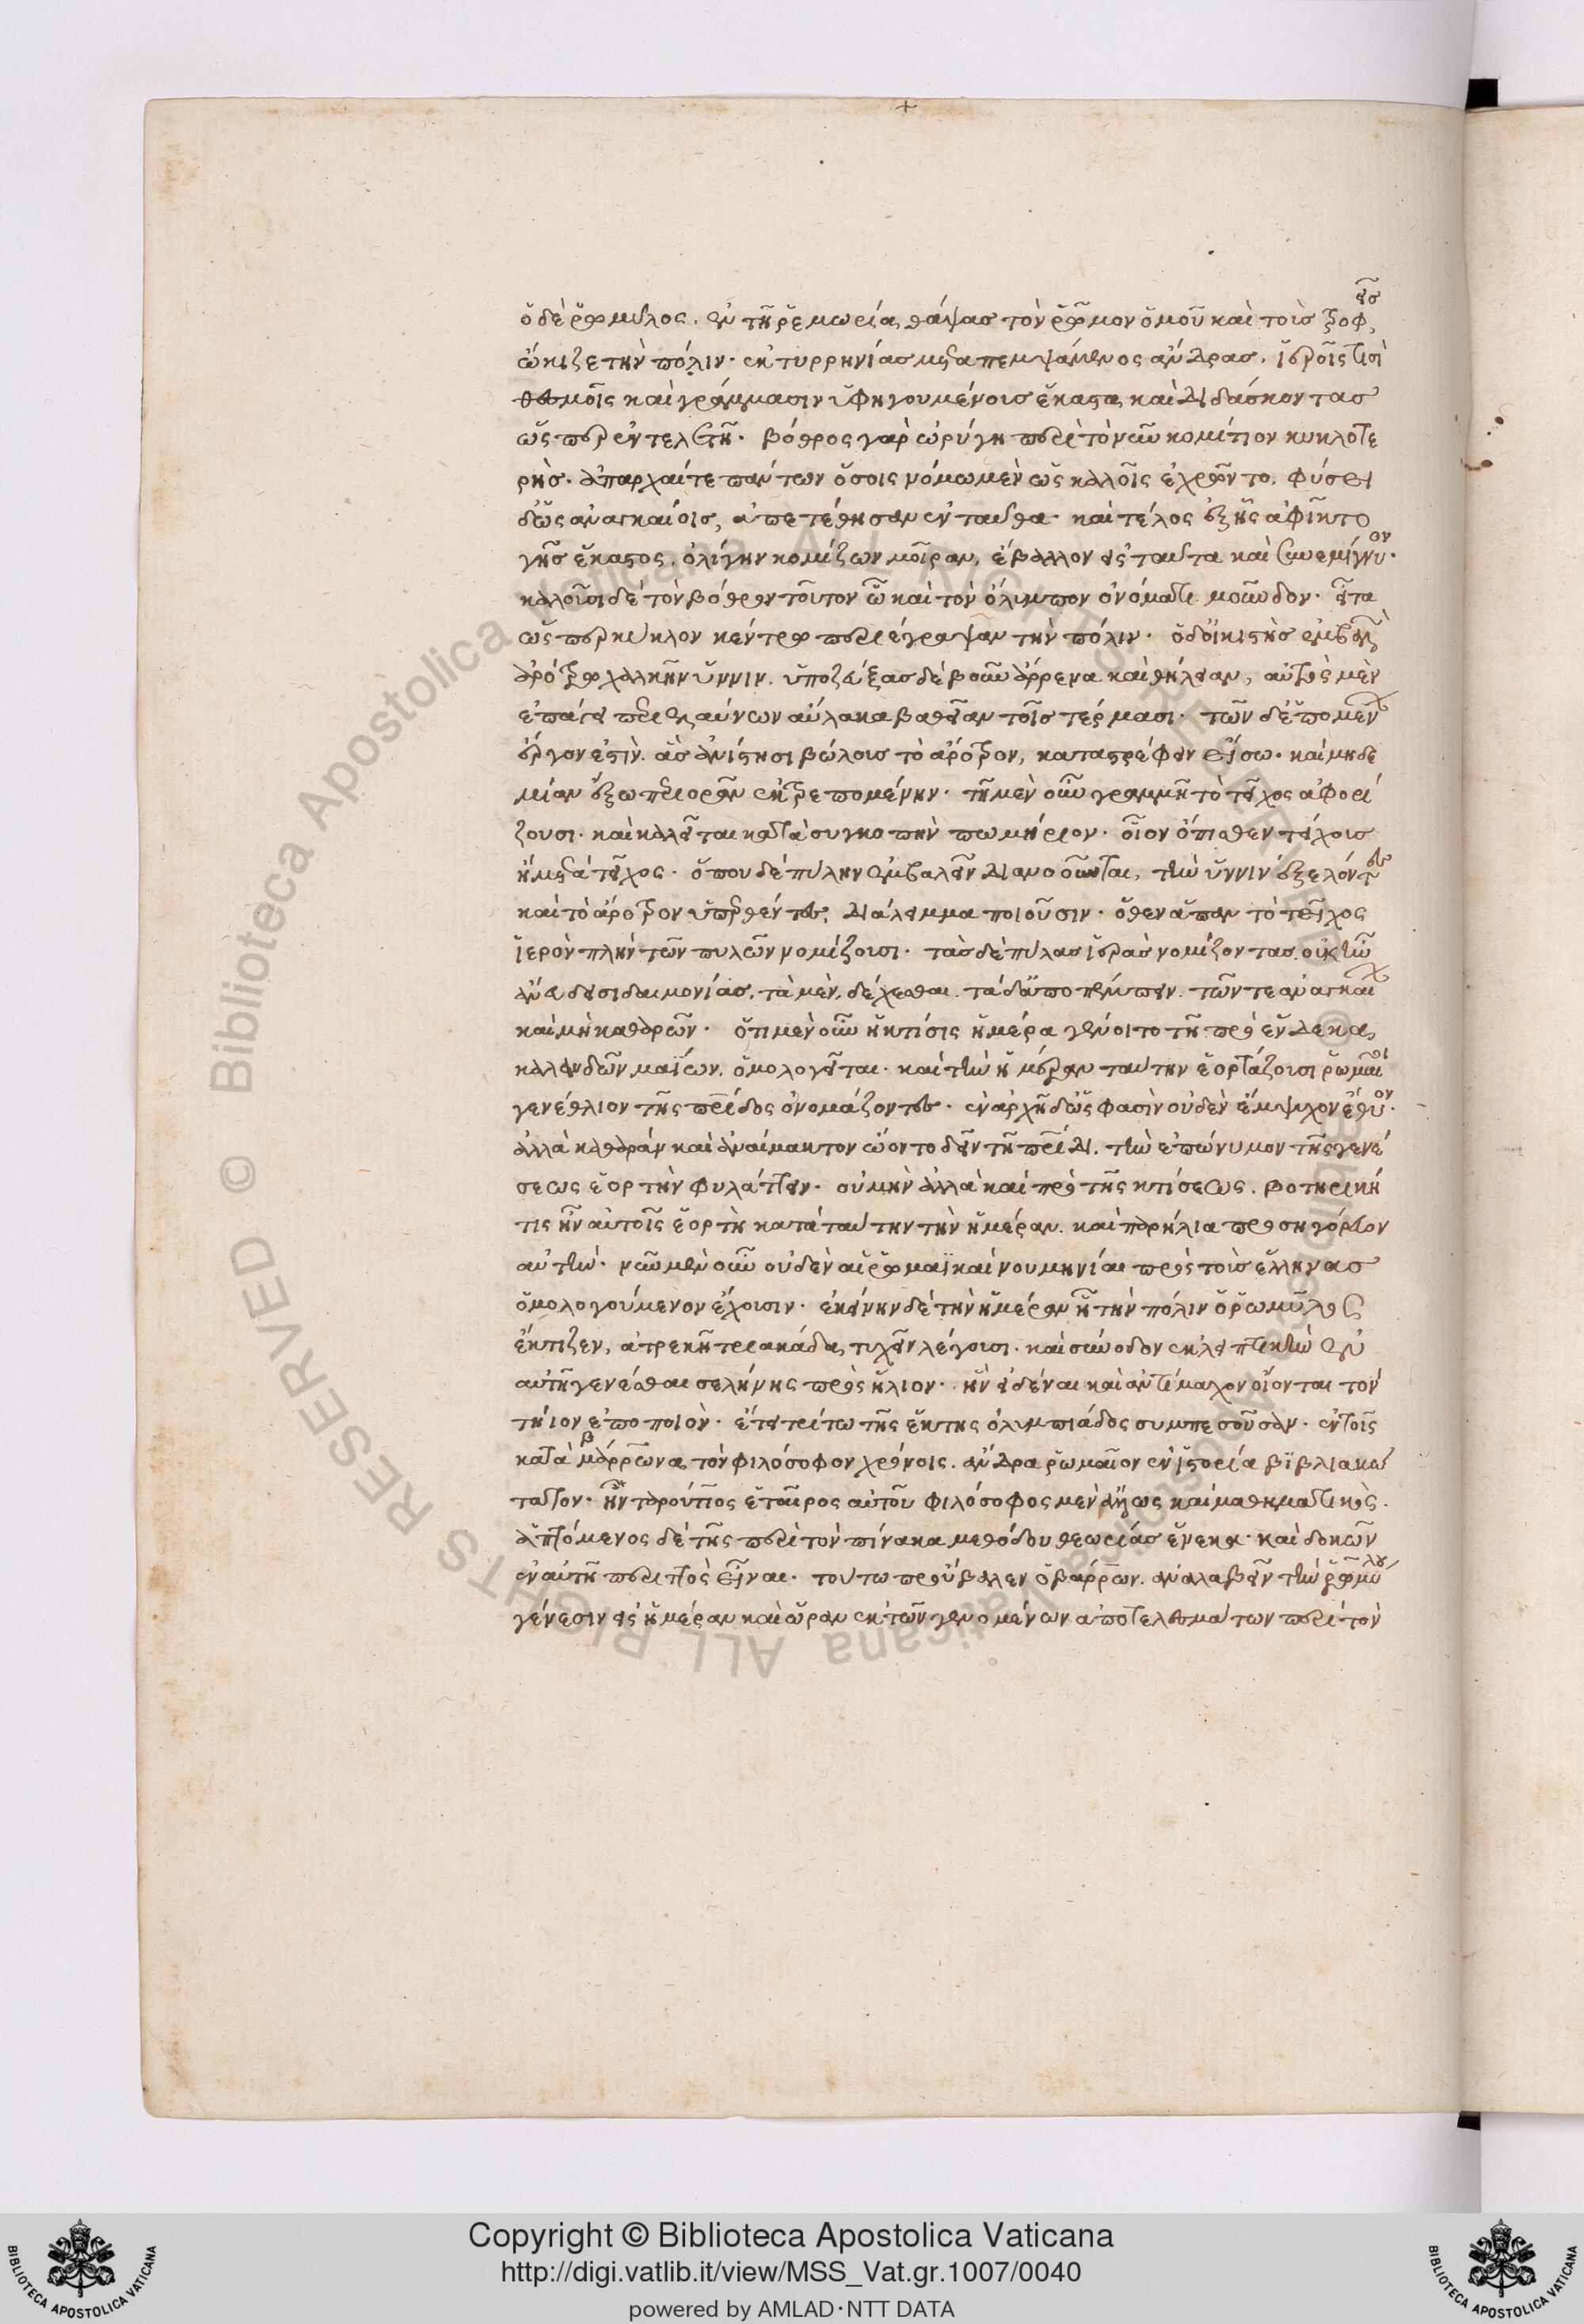 ὁ δὲ ῥωμύλος, ἐν τῇ ῥεμωρία θάψας τὸν ῥῶμον ὁμοῦ καὶ τοὺς τροφεῖς
ὤκιζε τὴν πόλιν· ἐκ τυρρηνίας μεταπεμψάμενος ἄνδρας, ἱεροῖς τισὶ
θεσμοῖς καὶ γράμμασιν ὑφηγουμένους ἕκαστα καὶ διδάσκοντας
ὥσπερ ἐν τελετῇ· βόθρος γὰρ ὠρύγη περὶ τὸ νῦν κομίτιον κυκλοτε
ρής· ἀπαρχαί τε πάντων ὅσοις νόμω μὲν ὡς καλοῖς ἐχρῶντο, φύσει
δ' ὡς ἀναγκαίοις, ἀπετέθησαν ἐνταῦθα· καὶ τέλος ἐξ ἧς ἀφῖκτο
γῆς ἕκαστος, ὀλίγην κομίζων μοῖραν, ἔβαλλον εἰς ταῦτα καὶ συνεμίγνυον·
καλοῦσι δὲ τὸν βόθρον τοῦτον ᾧ καὶ τὸν ὄλυμπον ὀνόματι μοῦνδον· εἶτα
ὥσπερ κύκλον κέντρω περιέγραψαν τὴν πόλιν· ὁ δ' οἰκιστὴς ἐμβαλὼν
ἀρότρω χαλκῆν ὕννιν, ὑποζεύξας δὲ βοῦν ἄρρενα καὶ θήλειαν, αὐτὸς μὲν
ἐπάγει περιελαύνων αὔλακα βαθεῖαν τοῖς τέρμασι· τῶν δ' ἑπομένων
ἔργον ἐστὶν, ἃς ἀνίστησι βώλους τὸ ἄροτρον, καταστρέφειν εἴσω· καὶ μηδε
μίαν ἔξω περιορᾶν ἐκτρεπομένην· τῇ μὲν οὖν γραμμῇ τὸ τεῖχος ἀφορί
ζουσι· καὶ καλεῖται κατὰ συγκοπὴν πωμήριον· οἷον ὄπισθεν τείχους
ἢ μετὰ τεῖχος· ὅπου δὲ πύλην ἐμβαλεῖν διανοοῦνται, τὴν ὕννιν ἐξελόντες
καὶ τὸ ἄροτρον ὑπερθέντες, διάλειμμα ποιοῦσιν· ὅθεν ἅπαν τὸ τεῖχος
ἱερὸν πλὴν τῶν πυλῶν νομίζουσι· τὰς δὲ πύλας ἱερὰς νομίζοντας, οὐκ ἦν
ἄνευ δεισιδαιμονίας, τὰ μὲν, δέχεσθαι, τὰ δ' ἀποπέμπειν, τῶν τε ἀναγκαίων
καὶ μὴ καθαρῶν· ὅτι μὲν οὖν ἡ κτίσις ἡμέρα γένοιτο τῇ πρὸ ἕνδεκα
καλανδῶν μαΐων, ὁμολογεῖται· καὶ τὴν ἡμέραν ταύτην ἑορτάζουσι ῥωμαῖοι
γενέθλιον τῆς πατρίδος ὀνομάζοντες· ἐν ἀρχῇ δ' ὥς φασὶν οὐδὲν ἔμψυχον ἔθυον·
ἀλλὰ καθαρὰν καὶ ἀναίμακτον ᾤοντο δεῖν τῇ πατρίδι, τὴν ἐπώνυμον τῆς γενέ
σεως ἑορτὴν φυλάττειν· οὐ μὴν ἀλλὰ καὶ πρὸ τῆς κτίσεως, βοτηρική
τις ἦν αὐτοῖς ἑορτὴ κατὰ ταύτην τὴν ἡμέραν, καὶ παρήλια προσηγόρευον
αὐτήν· νῦν μὲν οὖν οὐδὲν αἱ ῥωμαϊκαὶ νουμηνίαι πρὸς τοὺς ἕλληνας
ὁμολογούμενον ἔχουσιν· ἐκείνην δὲ τὴν ἡμέραν ᾗ τὴν πόλιν ὁ ῥωμύλος
ἔκτιζεν, ἀτρεκῆ τριακάδα τυχεῖν λέγουσι· καὶ σύνοδον ἐκλειπτικὴν ἐν
αὐτῇ γενέσθαι σελήνης πρὸς ἥλιον· ἣν εἰδέναι καὶ ἀντίμαχον οἴονται τὸν
τήιον ἐποποιὸν· ἔτει τρίτω τῆς ἕκτης ὀλυμπιάδος συμπεσοῦσαν· ἐν τοῖς
κατὰ βάρρωνα τὸν φιλόσοφον χρόνοις, ἄνδρα ῥωμαῖον ἐν ἱστορία βιβλιακώ
τατον· ἦν ταρούτιος ἑταῖρος αὐτοῦ φιλόσοφος μὲν ἄλλως καὶ μαθηματικὸς,
ἁπτόμενος δὲ τῆς περὶ τὸν πίνακα μεθόδου θεωρίας ἕνεκα· καὶ δοκῶν
ἐν αὐτῇ περιττὸς εἶναι· τούτω προὔβαλεν ὁ βάρρων, ἀναλαβεῖν τὴν ῥωμύλου
γένεσιν εἰς ἡμέραν καὶ ὥραν ἐκ τῶν γενομένων ἀποτελεσμάτων περὶ τὸν
Copyright © Biblioteca Apostolica Vaticana
http://digi.vatlib.it/view/MSS_Vat.gr.1007/0040
powered by AMLAD·NTT DATA